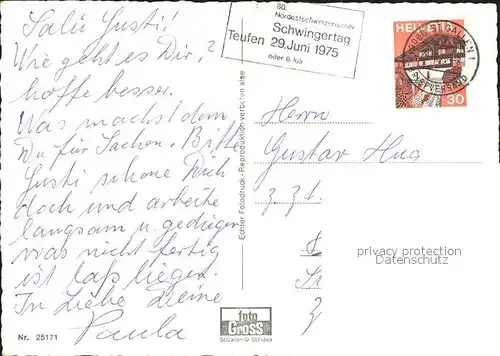 Salü Gusti!
Wie geht es Dir?
hoffe besser.
Was machst dem
Du für Sachen. Bitte
Gusti schone Dich
doch und arbeite
langsam u. gediegen
was nicht fertig
ist laß liegen.
In Liebe Deine
Paula
Nr. 25171
80.
Nordostschweizerischer
Schwingertag
Teufen 29. Juni 1975
oder 6. Juli
Echter Fotodruck - Reproduktion verboten
foto
GROSS
St. Gallen O. St. Fiden
HELVETIA
30
BRIEFVERSAND
Herrn
Gustav Hug
z. Zt.
privacy protection
Datenschutz